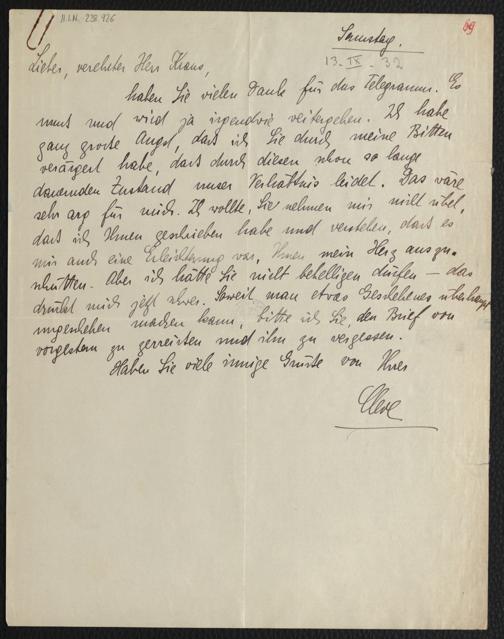 H.I.N. 238.926
69
Samstag.
13.-IX-32
Lieber, verehrter Herr Kraus,
haben Sie vielen Dank für das Telegramm. Es
muss und wird ja irgendwie weitergehen. Ich habe
ganz grosse Angst, dass ich Sie durch meine Bitten
verärgert habe, dass durch diesen schon so lange
dauernden Zustand unser Verhältnis leidet. Das wäre
sehr arg für mich. Ich wollte, Sie nehmen mir nicht übel,
dass ich Ihnen geschrieben habe und verstehen, dass es
mir auch eine Erleichterung war, Ihnen mein Herz auszu-
schütten. Aber ich hätte Sie nicht behelligen dürfen – das
drückt mich jetzt schwer. Soweit man etwas Geschehenes überhaupt
ungeschehen machen kann, bitte ich Sie, den Brief von
vorgestern zu zerreissen und ihn zu vergessen.
Haben Sie viele innige Grüsse von Ihrer